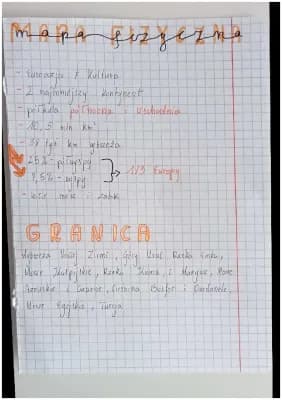 MAPA FIZYCZNA
mapa fizyczna
- Eurazja, kultura
- 2 najmniejszy kontynent
- półkula północna i wschodnia
- 10,5 mln km²
- 38 tyś km wybrzeża
- 25% - półwyspy
- 8,5% - wyspy
1/3 Europy
- wiele mórz i zatok
GRANICA
Wybrzeże Nowej Ziemi, Góry Ural, Rzeka Emba,
Morze Kaspijskie, Rzeka Kuma i Manycz, Morze
Azowskie i Czarne, Cieśnina Bosfor i Dardanele,
Morze Egejskie, Turcja